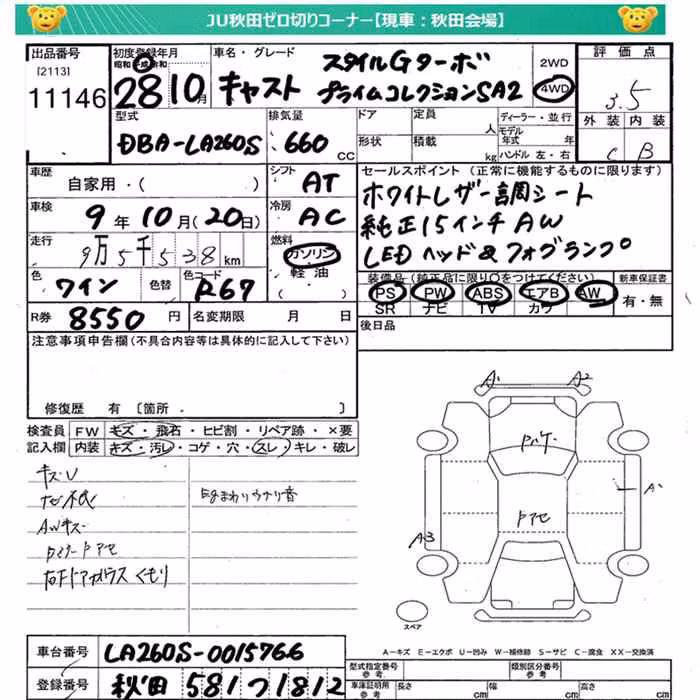 JU秋田ゼロ切りコーナー【現車：秋田会場】
出品番号
[2113]
11146
初度登録年月
昭和 平成 令和
28 10月
車名・グレード
キャスト
スタイルGターボ
プライムコレクションSA2
2WD
4WD
評価点
3.5
外装 内装
C B
型式
DBA-LA260S
排気量
660 CC
ドア
形状
定員
人
積載
kg
ディーラー・並行
モデル
年式 年
ハンドル 左・右
車歴
自家用・( )
シフト
AT
車検
9年10月(20日)
冷房
AC
走行
9万5千538km
燃料
ガソリン
軽油
( )
色
ワイン
色替
色コード
R67
R券
8550 円
名変期限 月 日
セールスポイント (正常に機能するものに限ります)
ホワイトレザー調シート
純正15インチAW
LEDヘッド&フォグランプ
装備品 (純正品に限り○をつけてください)
PS PW ABS エアB AW
SR ナビ TV カワ
新車保証書
有・無
後日品
注意事項申告欄(不具合内容等は具体的に記入して下さい)
修復歴 有 [箇所・ ]
検査員
記入欄
FW キズ・飛石・ヒビ割・リペア跡・×要
内装 キズ・汚レ・コゲ・穴・スレ・キレ・破レ
キズU
AWキズ
Egまわりウナリ音
A1 A2
A3
スペア
A－キズ E－エクボ U－凹み W－補修跡 S－サビ C－腐食 XX－交換済
車台番号
LA260S-0015766
登録番号
秋田 581つ1812
型式指定番号
参考
類別区分番号
参考
車庫証明用
参考
長さ cm
幅 cm
高さ cm